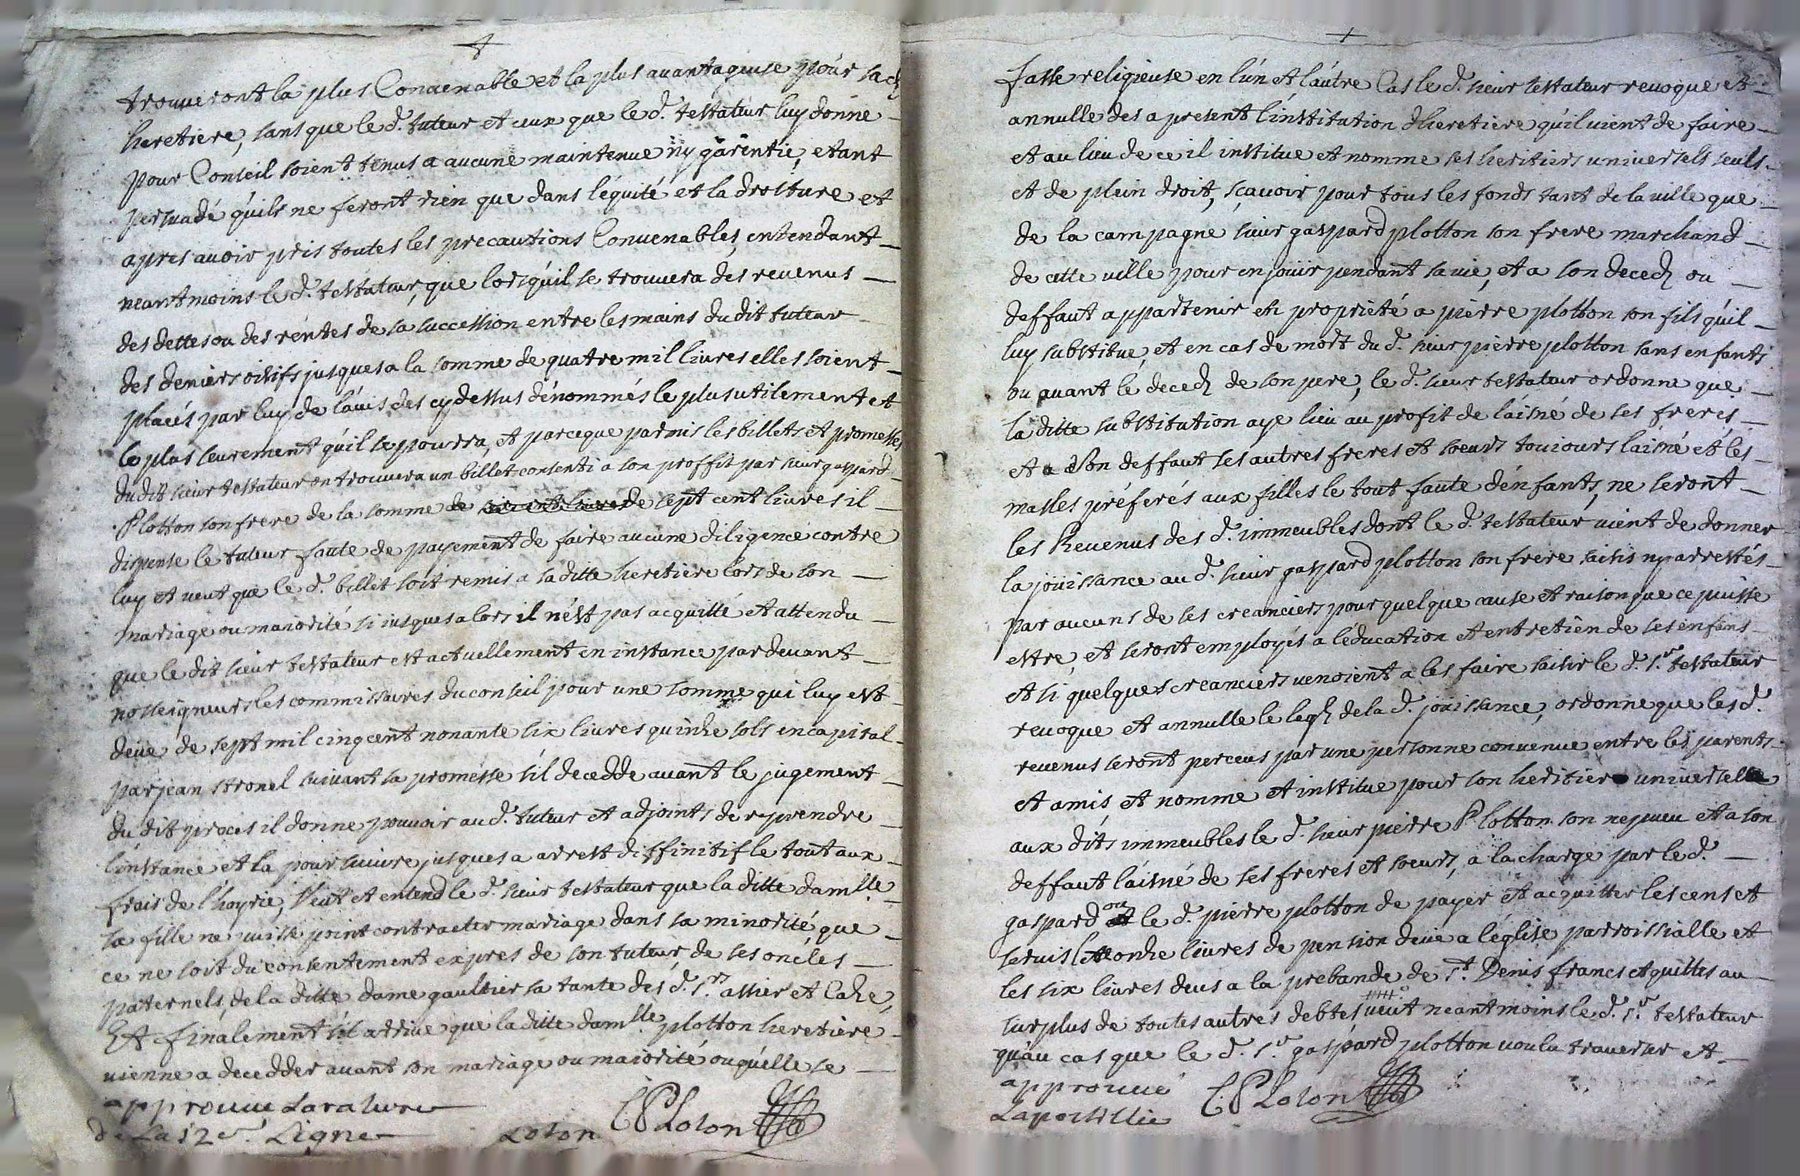 trouveront la plus Convenable et la plus avantageuse pour sad
heretiere, sans que le d. tuteur et ceux que le d. testateur luy donne
pour Conseil soient tenus a aucune maintenue ny garentie, etant
persuadé quils ne feront rien que dans léquité et la droiture et
apres avoir pris toutes les precautions Convenables, entendant
neantmoins le d. testateur, que lorsquil se trouvera des revenus
des dettes ou des rentes de sa succession entre les mains dudit tuteur
des deniers oisifs jusques a la somme de quatre mil livres elles soient
placés par luy de lavis des cy dessus dénommés le plus utilement et
le plus seurement quil se pourra, et parceque parmis les billets et promesses
dudit sieur testateur on trouvera un billet consenti a son proffit par sieur gaspard
Plotton son frere de la somme de de sept cent livres il
dispense le tuteur faute de payement de faire aucune diligence contre
luy et veut que le d. billet soit remis a sa ditte heretiere lors de son
mariage ou maiorité si jusques alors il nést pas acquitté et attendu
que le dit sieur testateur est actuellement en instance pardevant
nosseigneurs les commissaires du conseil pour une somme qui luy est
deüe de sept mil cinq cent nonante six livres quinze sols en capital
par jean stronel suivant sa promesse sil decedde avant le jugement
du dit procés il donne pouvoir au d. tuteur et adjoints de reprendre
linstance et la poursuivre jusques a arrest diffinitif le tout aux
frais de lhoyrie, Veut et entend le d. sieur testateur que la ditte damlle
sa fille ne puisse point contracter mariage dans sa minorité que
ce ne soit du consentement expres de son tuteur, de ses oncles
paternels, de la ditte dame gaultier sa tante des d. srs assier et Caze,
Et finalement sil arrive que la ditte damlle plotton heretiere
vienne a decedder avant son mariage ou maiorité ou quelle se
approuve La rature
de La 12e Ligne Loton C. PLoton
fasse religieuse en lún et láutre Cas le d. sieur testateur revoque et
annulle des a present línstitution dheretiere quil vient de faire
et au lieu de ce il institue et nomme ses heritiers universels seuls
et de plein droit, sçavoir pour tous les fonds tant de la ville que
de la campagne sieur gaspard plotton son frere marchand
de cette ville pour en joüir pendant sa vie, et a son deced ou
deffaut appartenir en proprieté a pierre plotton son fils quil
luy substitue, et en cas de mort du d. sieur pierre plotton sans enfants
ou avant le deced de son pere, le d. sieur testateur ordonne que
la ditte substitution aye lieu au profit de laisné de ses freres
et a son deffaut ses autres freres et soeurs toujours laisné et les
masles préferés aux filles le tout faute dénfants, ne seront
les Revenus des d. immeubles dont le d. testateur vient de donner
la joüissance au d. sieur gaspard plotton son frere saisis ny arrestés
par aucuns de ses creanciers pour quelque cause et raison que ce puisse
estre, et seront employés a léducation et entretien de ses enfans
et si quelques creanciers venoient a les faire saisir le d. sr testateur
revoque et annulle le legs de la d. joüissance, ordonne que les d.
revenus seront perceus par une personne convenue entre les parents
et amis, et nomme et institue pour son heritier universel
aux dits immeubles le d. sieur pierre Plotton son nepveu et a son
deffaut laisné de ses freres et soeurs, a la charge par le d.
gaspard ou le d. pierre plotton de payer et acquitter les cens et
servis onze livres de pension deüe a léglise parroissialle et
les six livres deus a la prebande de st. Denis francs et quittes au
surplus de toutes autres debtes, veut neantmoins le d. sr testateur
quau cas que le d. sr gaspard plotton voulu traverser et
approuvé
La postillie C. PLoton